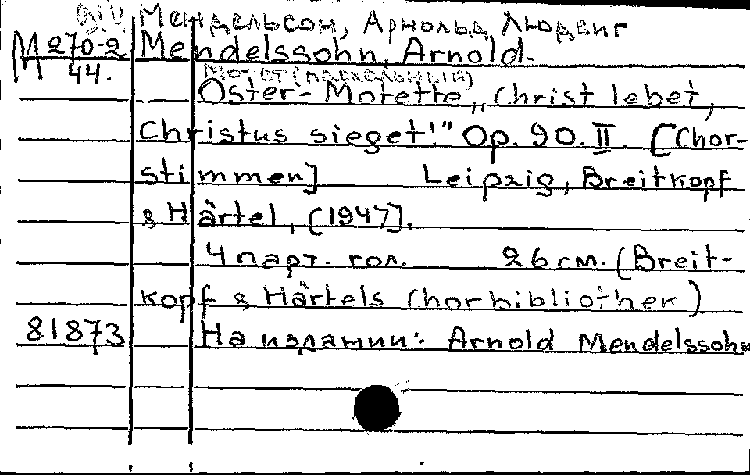 Мендельсон, Арнольд Людвиг
М 270-2 Mendelssohn, Arnold.
44.
Мотет (пасхальный)
Oster-Motette „Christ lebet,
Christus sieget!" Op. 90. II. [Chor-
stimmen] Leipzig, Breitkopf
& Härtel, [1947].
4 парт. гол. 26 см. (Breit-
kopf & Härtels Chorbibliothek)
81873 На издании: Arnold Mendelssohn